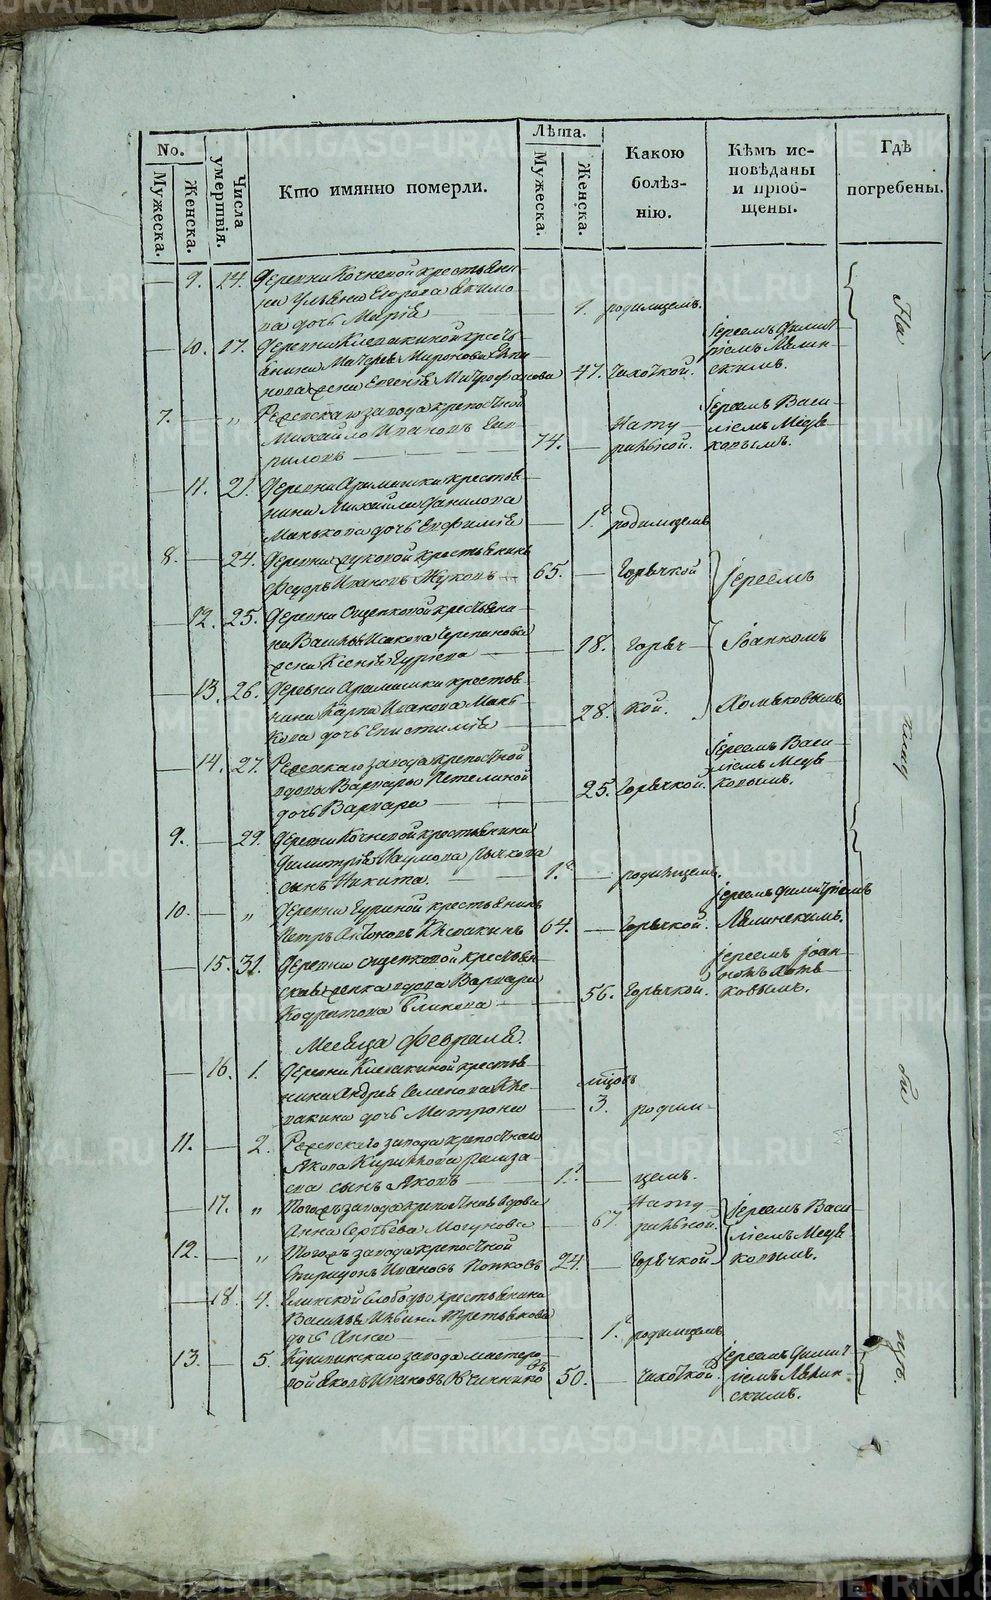 No.
Мужеска.
Женска.
Числа умертвія.
Кто имянно померли.
Лѣта.
Мужеска.
Женска.
Какою болѣз-нію.
Кѣмъ ис-повѣданы и пріоб-щены.
Гдѣ погребены.
9. 14. Деревни Кочневой крестьяни-
на Ульяна Егорова Акимо-
ва дочь Марія 1. родимцемъ.
10. 17. Деревни Клевакиной кресть-
янина Матвея Миронова
жена Евгенія Митрофанова 47. чахоткой. Іереемъ Димит-
ріемъ Ляпин-
скимъ.
7. „ Режевскаго завода крепостной
Михайло Ивановъ Гав-
риловъ 74. Нату-
ральной. Іереемъ Васи-
ліемъ Медв-
ковымъ.
11. 21. Деревни Арамашки крестья-
нина Михайла Данилова
Манькова дочь Евфимія 1. родимцемъ
8. 24. Деревни Жуковой крестьянинъ
Федоръ Ивановъ Жуковъ 65. Горячкой Іереемъ
12. 25. Деревни Ощепковой крестьяни-
на Василья Исакова Черепанова
жена Ксенія Гурьева 18. Горяч- Іоанномъ
13. 26. Деревни Арамашки крестья-
нина Карпа Иванова Мань-
кова дочь Епистимія 28. кой. Хомяковымъ.
14. 27. Режевскаго завода крепостной
вдовы Варвары Петелиной
дочь Варвара 25. Горячкой. Іереемъ Васи-
ліемъ Медв-
ковымъ.
9. 29. Деревни Кочневой крестьянина
Димитрія Наумова Лычкова
сынъ Никита. 1. родимцемъ.
10. „ Деревни Гуриной крестьянинъ
Петръ Антоновъ Клевакинъ 64. Горячкой. Іереемъ Димитріемъ
Ляпинскимъ.
15. 31. Деревни Ощепковой крестьян-
ская женка вдова Варвара
Кодратова Блинова 56. Горячкой. Іереемъ Іоан-
номъ Хомя-
ковымъ.
Месяца Февраля.
16. 1. Деревни Клевакиной крестья-
нина Андрея Семенова Кле-
вакина дочь Матрона мѣсяцовъ 3. родим-
11. 2. Режевскаго завода крепостнаго
Якова Кирилова
сынъ Яковъ 1. цемъ.
17. „ Тогожъ завода крепостная вдова
Анна Сергѣева Могунова 67. Нату-
ральной. Іереемъ Васи-
12. „ Тогожъ завода крепостной
Спиридонъ Ивановъ Попковъ 24. Горячкой. ліемъ Медв-
ковымъ.
18. 4. Глинской слободы крестьянина
Василья Ильина Третьякова
дочь Анна 1. родимцемъ
13. 5. Кушвинскаго завода мастеро-
вой Яковъ Ивановъ Овчинниковъ 50. чахоткой. Іереемъ Димит-
ріемъ Ляпин-
скимъ.
На
клад
би
щѣ.
METRIKI.GASO-URAL.RU